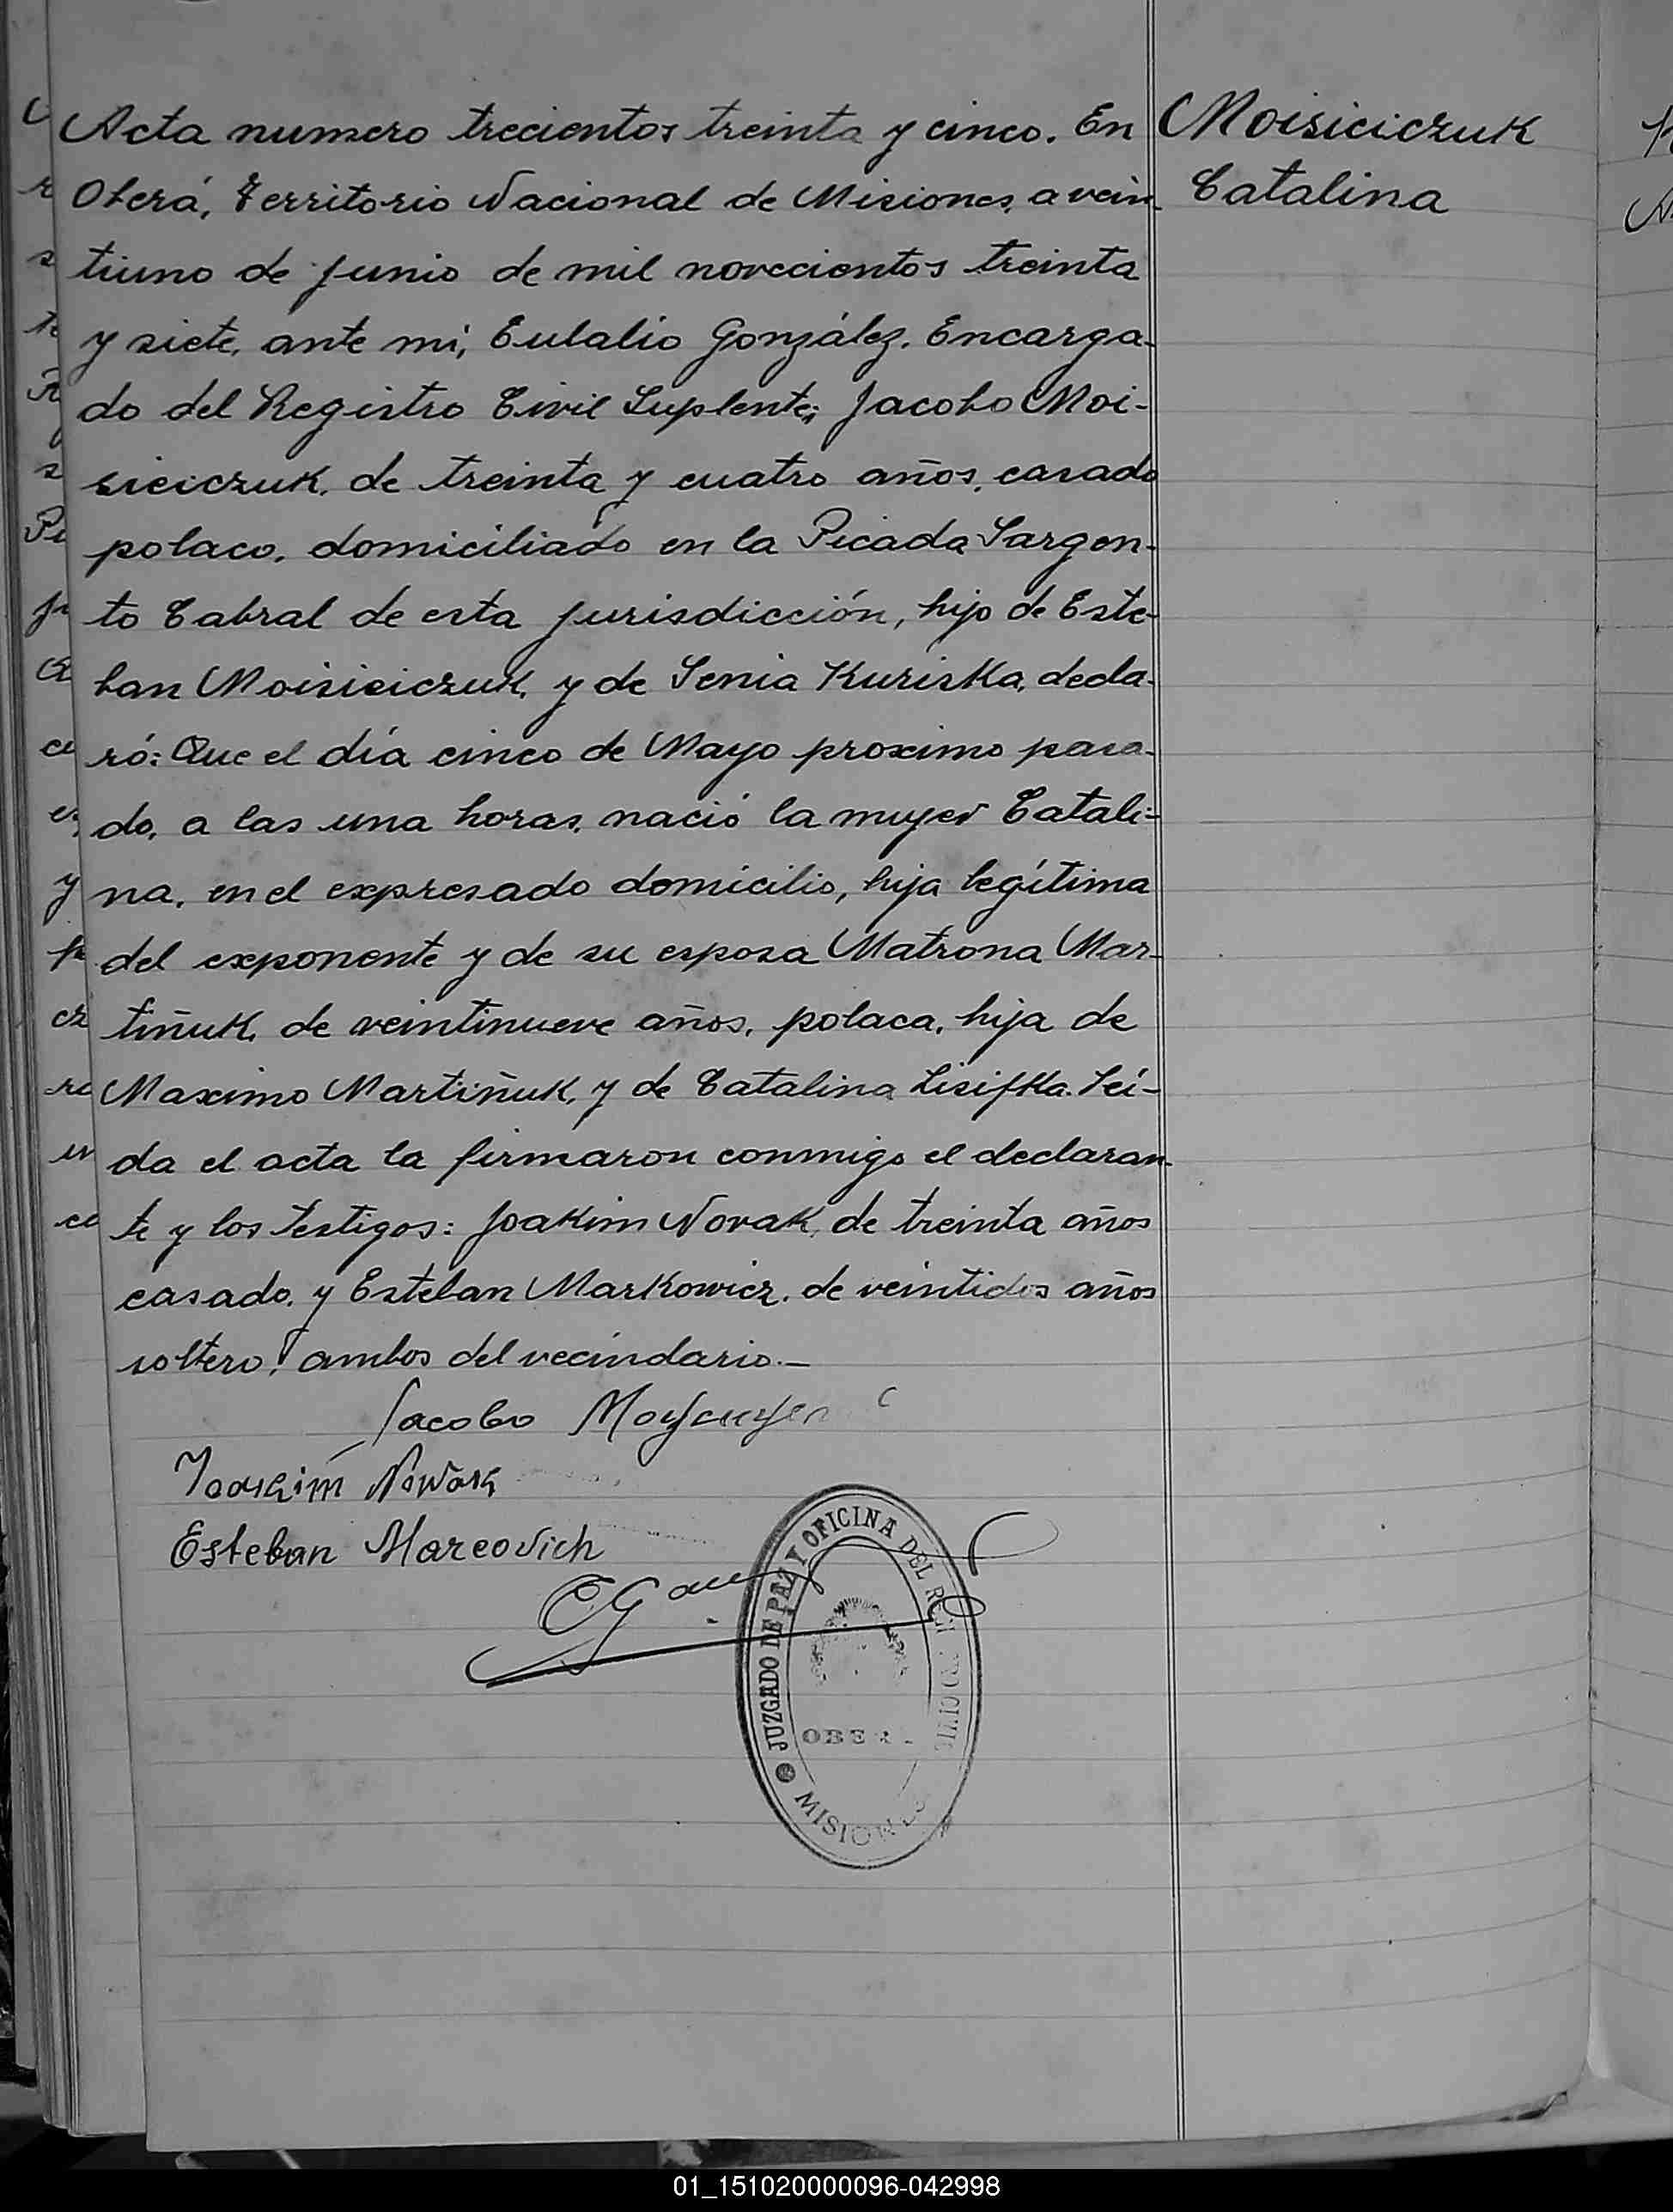 Acta numero trecientos treinta y cinco. En
Oberá, Territorio Nacional de Misiones, a vein-
tiuno de junio de mil novecientos treinta
y siete, ante mi, Eulalio González, Encarga-
do del Registro Civil Suplente; Jacobo Moi-
siciczuk, de treinta y cuatro años, casado
polaco, domiciliado en la Picada Sargen-
to Cabral de esta jurisdicción, hijo de Este-
ban Moisiciczuk, y de Senia Kuriska, decla-
ró: Que el día cinco de Mayo proximo pasa-
do, a las una horas, nació la mujer Catali-
na, en el expresado domicilio, hija legítima
del exponente y de su esposa Matrona Mar-
tiñuk, de veintinueve años, polaca, hija de
Maximo Martiñuk, y de Catalina Lisifka. Leí-
da el acta la firmaron conmigo el declaran-
te y los testigos: Joakim Novak, de treinta años
casado, y Esteban Markowicz, de veintidos años
soltero, ambos del vecindario.—
Jacobo
Joakim Nowak
Esteban Marcovich
Moisiciczuk
Catalina
JUZGADO DE PAZ Y OFICINA DEL
MISIONES
01_151020000096-042998